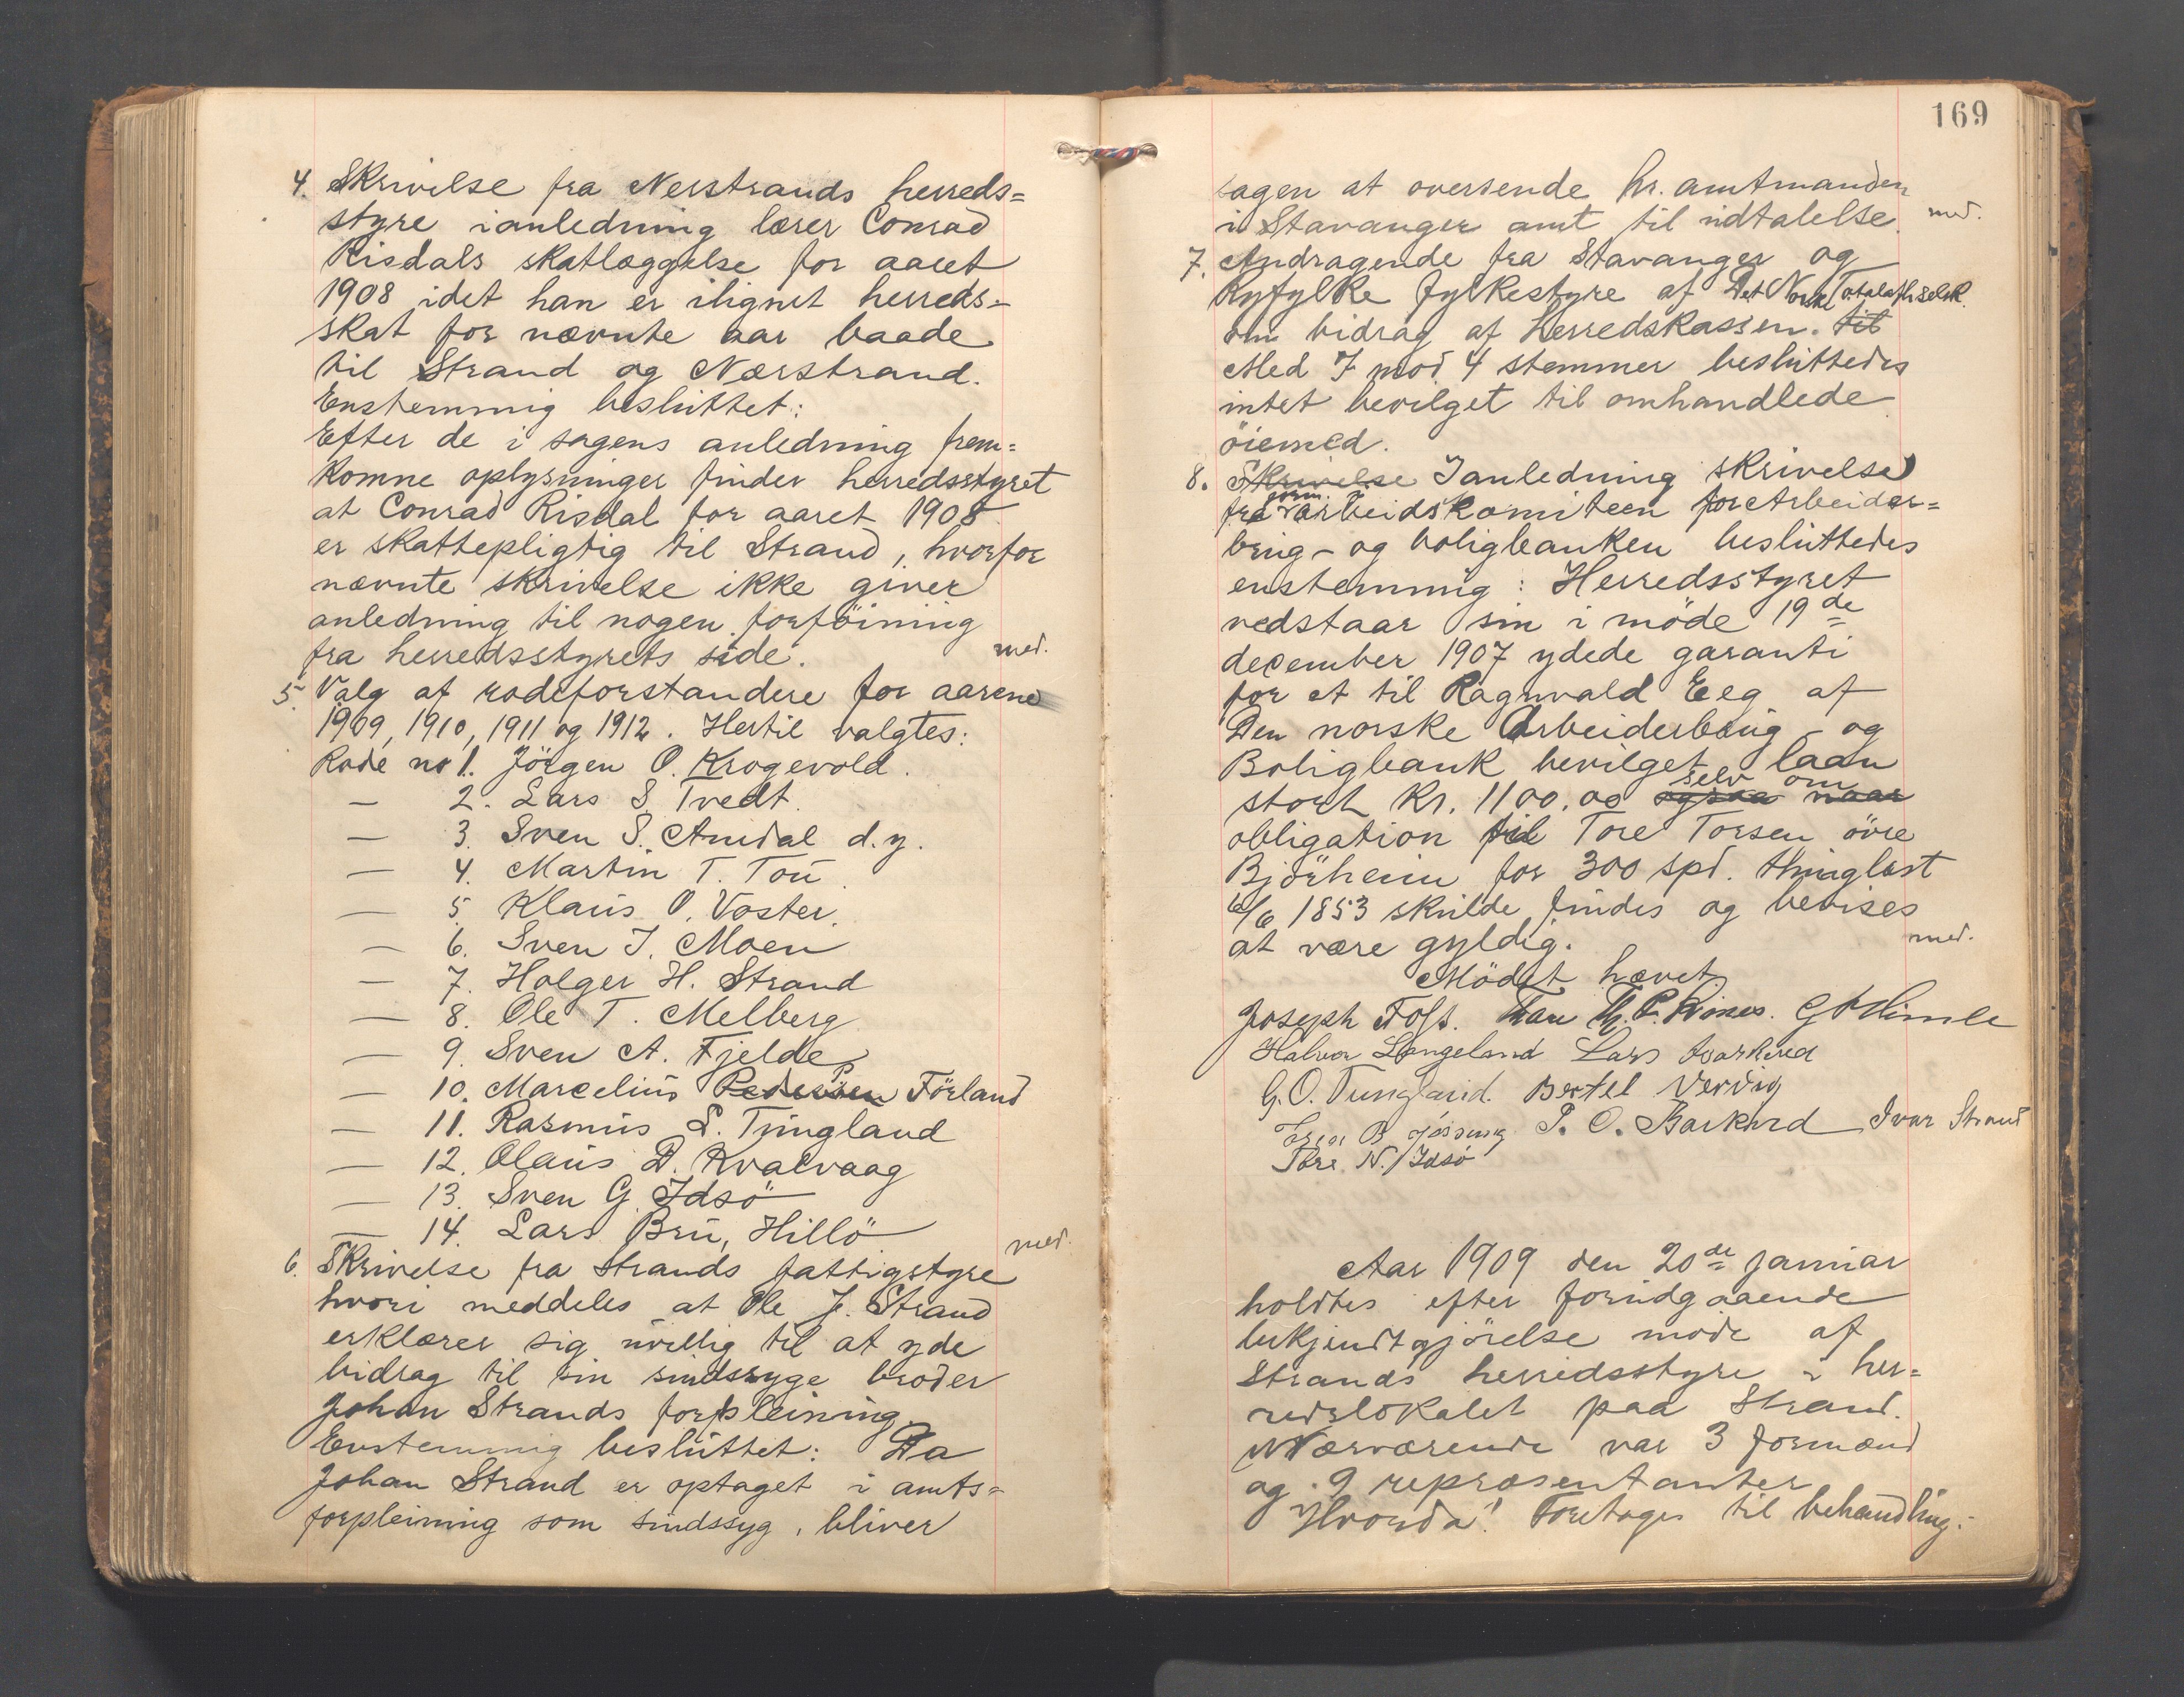 4. Skrivelse fra Nerstrands herreds=
styre ianledning lærer Conrad
Risdals skatlæggelse for aaret
1908 idet han er ilignet herreds-
skat for nævnte aar baade
til Strand og Nærstrand.
Enstemmig besluttet:
Efter de i sagens anledning frem=
komne oplysninger finder herredsstyret
at Conrad Risdal for aaret 1908
er skattepligtig til Strand, hvorfor
nævnte skrivelse ikke giver
anledning til nogen forföining
fra herredsstyrets side. med.
5. Valg af rodeforstandere for aarene
1909, 1910, 1911 og 1912. Hertil valgtes:
Rode no 1. Jörgen O. Krogevold.
— 2. Lars S. Tvedt.
— 3. Sven S. Amdal d.y.
— 4. Martin T. Tou.
— 5. Klaus O. Voster.
— 6. Sven J. Moen
— 7. Holger H. Strand
— 8. Ole T. Melberg
— 9. Sven A. Fjelde
— 10. Marcelius Pedersen P. Förland
— 11. Rasmus L. Tungland
— 12. Olaus D. Kvalvaag
— 13. Sven G. Idsö
— 14. Lars Bru, Hillö
med.
6. Skrivelse fra Strands fattigstyre
hvori meddeles at Ole J. Strand
erklærer sig uvillig til at yde
bidrag til sin sindssyge broder
Johan Strands forpleining.
Enstemmig besluttet: Da
Johan Strand er optaget i amts=
forpleining som sindssyg, bliver
169
sagen at oversende hr. amtmanden
i Stavanger amt til udtalelse. med.
7. Andragende fra Stavanger og
Ryfylke fylkestyre af Det Norske Totalafh.selsk.
om bidrag af herredskassen. til
Med 7 mod 4 stemmer besluttedes
intet bevilget til omhandlede
öiemed.
8. Skrivelse Ianledning skrivelse
fra form. arbeidskomiteen for Arbeider=
brug- og boligbanken besluttedes
enstemmig: Herredsstyret
vedstaar sin i möde 19de
december 1907 ydede garanti
for et til Ragnvald Eeg af
Den norske Arbeiderbrug- og
Boligbank bevilget laan
stort kr. 1100.00 ogsaa naar selv om
obligation til Tore Torsen övre
Björheim for 300 spd. thinglæst
/6 1853 skulde findes og bevises
at være gyldig. med.
Mödet hævet.
Joseph Tofs. G Himle
Halvor Langeland Lars Barkved
G. O. Tungland. Bertel Vervig
B Jössang P. O. Barkved Ivar Strand
Tore N. Idsö
Aar 1909 den 20de januar
holdtes efter forudgaaende
bekjendtgjörelse möde af
Strands herredsstyre i her=
redslokalet paa Strand.
Nærværende var 3 formænd
og 9 repræsentanter
Hvorda! Foretages til behandling: